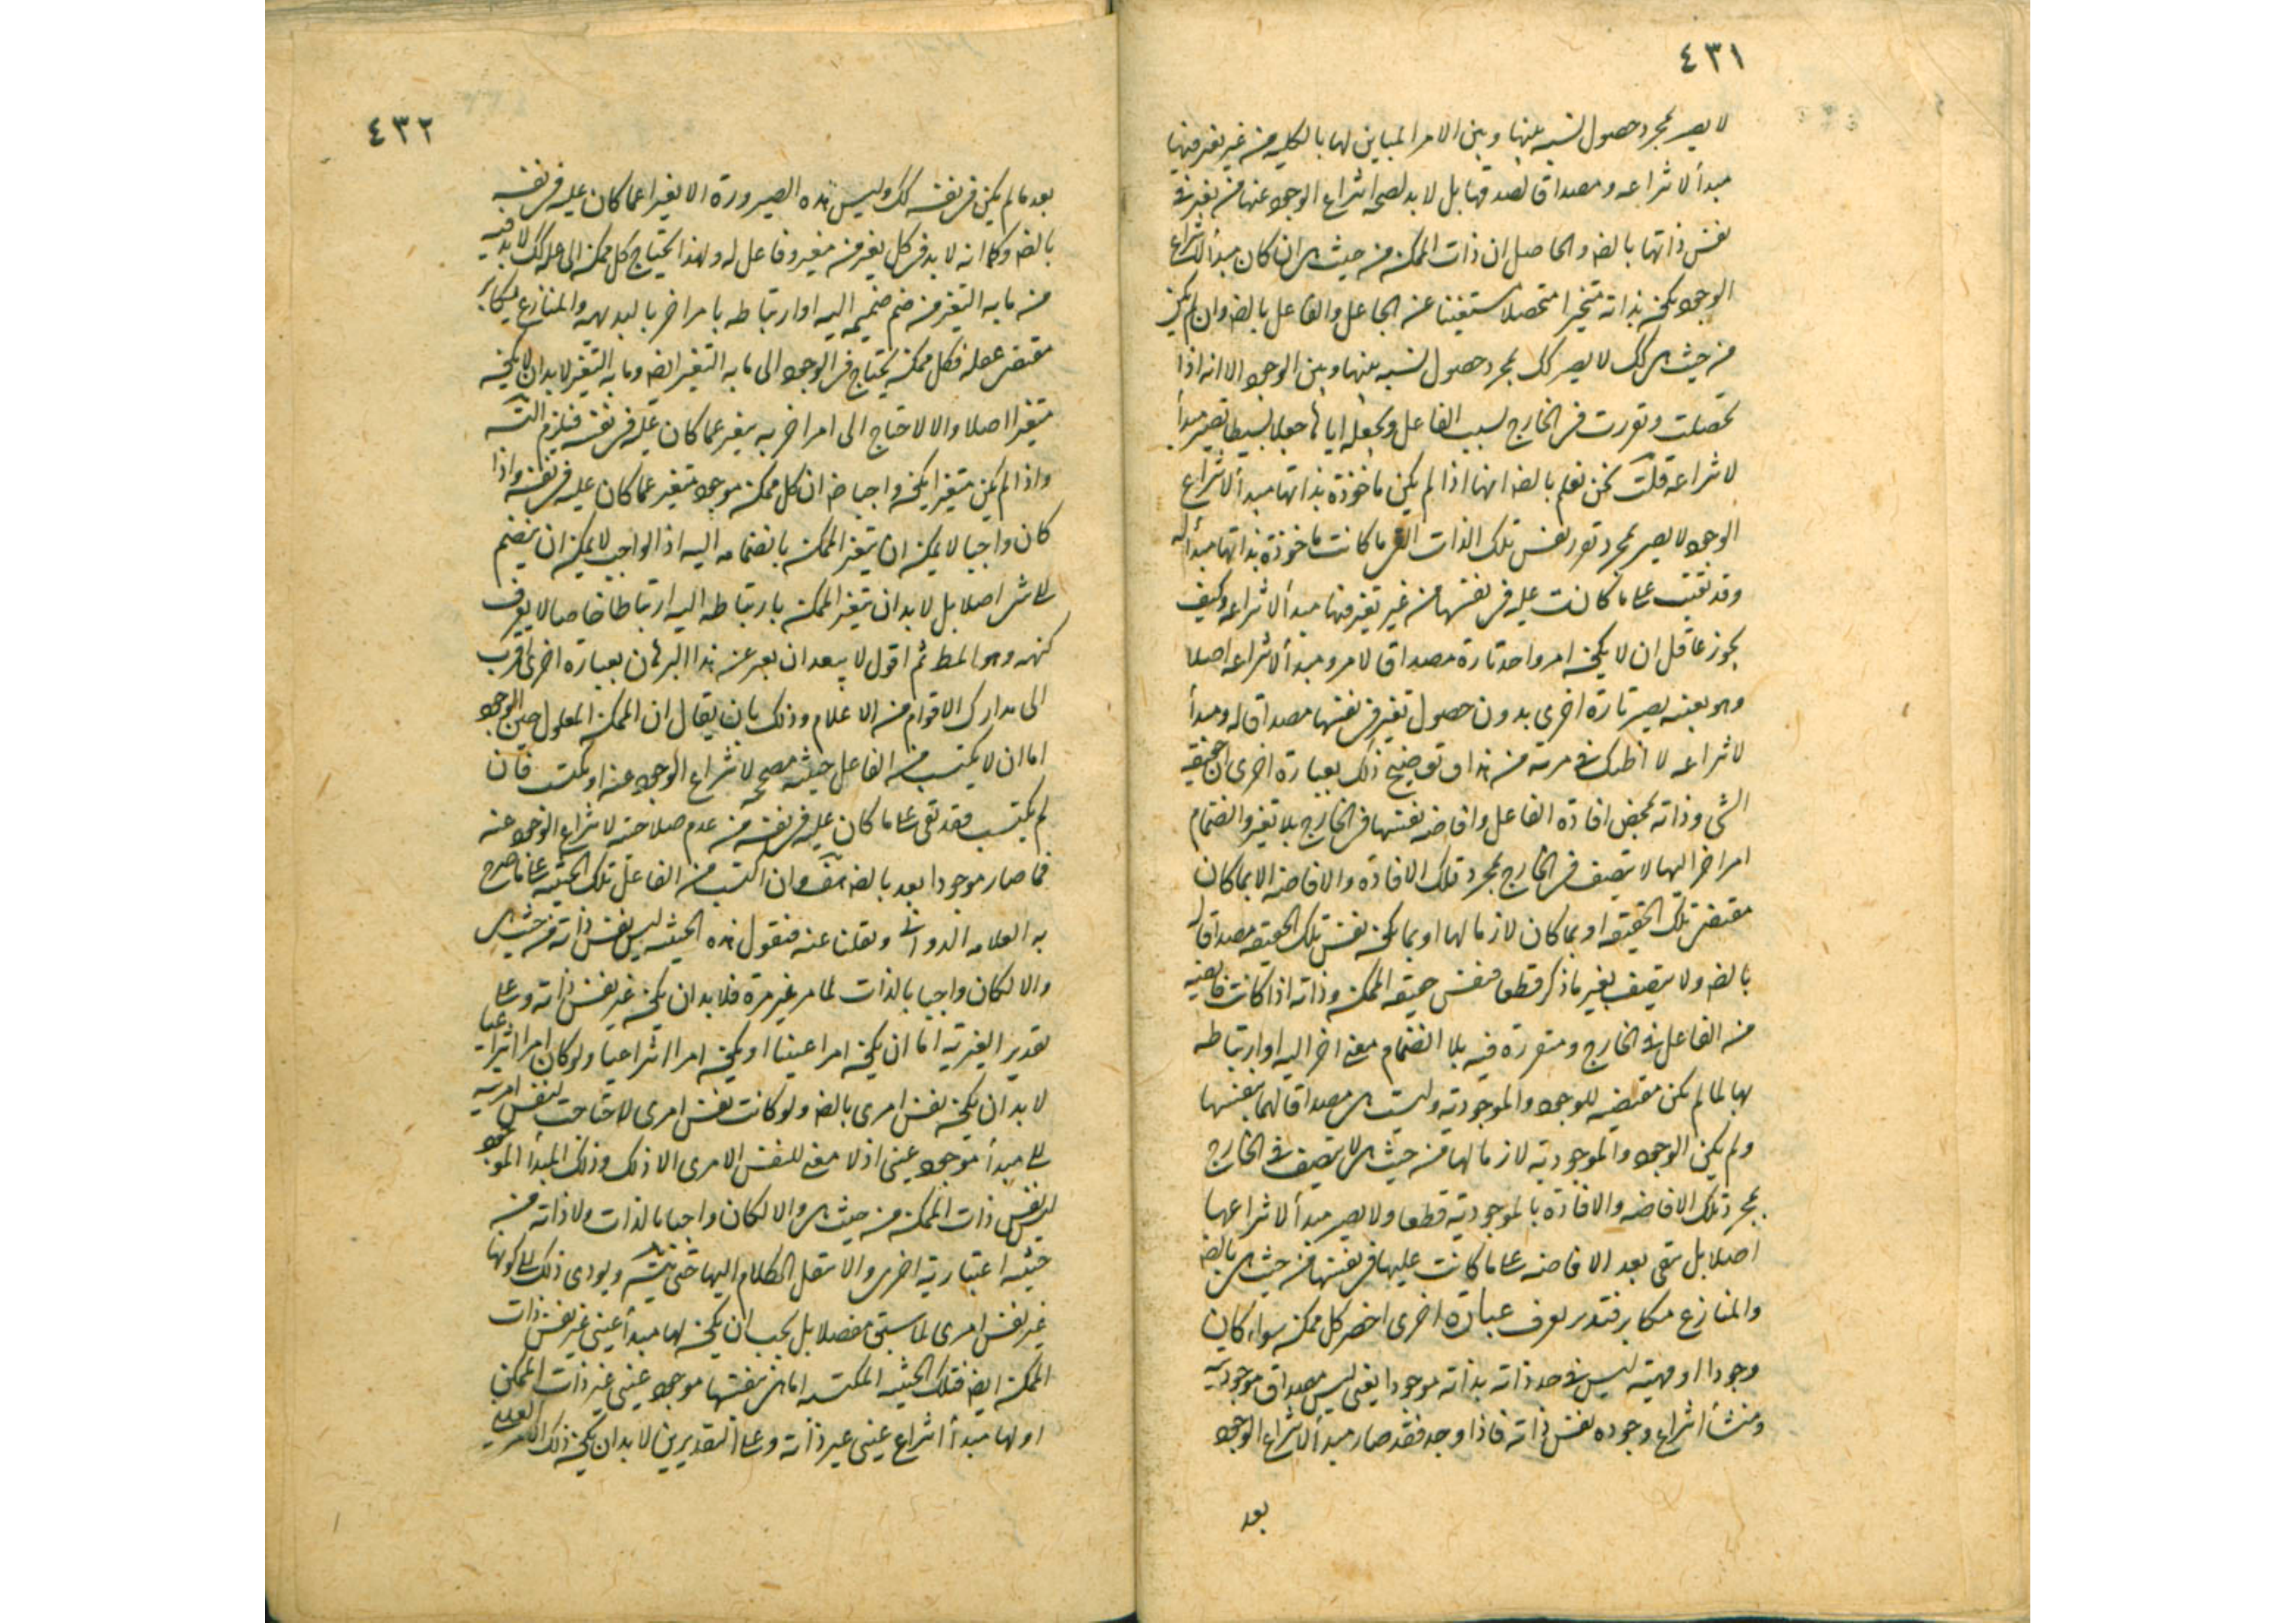 ٤٣١
لا يصير بمجرد حصول نسبه بينها وبين الامر المباين لها بالكليه من غير تغير فيها
مبدأ لانتزاعه ومصداقا لصدقها بل لا بد لصحه انتزاع الوجود عنها من تغير في
نفس ذاتها بالضـ والحاصل ان ذات الممكن من حيث هي ان كان مبدأ لانتزاع
الوجود يكون بذاته متخيرا متحصلا مستغنيا عن الجاعل والفاعل بالضـ وان لم يكن
من حيث هي كك لا يصير كك بمجرد حصول نسبه بينها وبين الوجود الا انه اذا
تحصلت وتقررت في الخارج لسبب الفاعل وبجعله اياها جعلا بسيطا تصير مبدأ
لانتزاعه قلت نحن نعلم بالضـ انها اذا لم يكن ماخوذة بذاتها مبدأ لانتزاع
الوجود لا يصير بمجرد تقرر نفس تلك الذات التي ما كانت ماخوذة بذاتها مبدأ له
وقد بقيت على ما كانت عليه في نفسها من غير تغير فيها مبدأ لانتزاعه وكيف
يجوز عاقل ان لا يكون امر واحد تارة مصداقا لامر ومبدأ لانتزاعه اصلا
وهو بعينه يصير تارة اخرى بدون حصول تغير في نفسها مصداقا له ومبدأ
لانتزاعه لا اظنك في مرية من هذا وتوضيح ذلك بعبارة اخرى ان حقيقة
الشي وذاته بمحض افادة الفاعل وافاضه نفسها في الخارج بلا تغير وانضمام
امر اخر اليها لا يتصف في الخارج بمجرد تلك الافادة والافاضه الا بما كان
مقتضى تلك الحقيقه او بما كان لازما لها او بما يكون نفس تلك الحقيقه مصداقا له
بالضـ ولا يتصف بغير ما ذكر قطعا فنفس حقيقه الممكن وذاته اذا كانت فايضه
من الفاعل في الخارج ومتقررة فيه بلا انضمام معنى اخر اليه او ارتباطه
بها لما لم تكن مقتضيه للوجود والموجوديه وليست هي مصداقا لهما بنفسها
ولم يكن الوجود والموجوديه لازما لها من حيث هي لا يتصف في الخارج
بمجرد تلك الافاضه والافادة بالموجوديه قطعا ولا يصير مبدأ لانتزاعها
اصلا بل تبقى بعد الافاضه على ما كانت عليها في نفسها من حيث هي بالضـ
والمنازع مكابر فتدبر بعرف عبارة اخرى اخصر كل ممكن سواء كان
وجودا او مهية ليس في حد ذاته بذاته موجودا يعني ليس مصداق موجوديه
ومنشأ انتزاع وجوده نفس ذاته فاذا وجد فقد صار مبدأ لانتزاع الوجود
بعد
٤٣٢
بعد ما لم يكن في نفسه كك وليس هذه الصيرورة الا تغيرا عما كان عليه في نفسه
بالضـ وكما انه لا بد في كل تغير من مغير وفاعل له ولهذا يحتاج كل ممكن الى عله كك لا بد فيه
من ما به التغير من ضم ضميمه اليه او ارتباطه بامر اخر بالبديهه والمنازع يكابر
مقتضى عقله فكل ممكن يحتاج في الوجود الى ما به التغير ايضـ وما به التغير لا بد ان لا يكون
متغيرا اصلا والا لاحتاج الى امر اخر به يتغير عما كان عليه في نفسه فيلزم التسـ
واذا لم يكن متغيرا يكون واجبا ضـ ان كل ممكن موجود متغير عما كان عليه في نفسه واذا
كان واجبا لا يمكن ان يتغير الممكن بانضمامه اليه اذ الواجب لا يمكن ان ينضم
الى شي اصلا بل لا بد ان يتغير الممكن بارتباطه اليه ارتباطا خاصا لا يعرف
كنهه وهو المط ثم اقول لا يبعد ان يعبر عن هذا البرهان بعبارة اخرى اقرب
الى مدارك الاقوام من الاعلام وذلك بان يقال ان الممكن المعلول حين الوجود
اما ان لا يكتسب من الفاعل حيثيه مصححه لانتزاع الوجود عنه او يكتسب فان
لم يكتسب فقد بقي على ما كان عليه في نفسه من عدم صلاحيته لانتزاع الوجود عنه
فما صار موجودا بعد بالضـ هف وان اكتسب من الفاعل تلك الحيثيه على ما صرح
به العلامه الدواني ونقلنا عنه فنقول هذه الحيثيه ليس نفس ذاته من حيث هي
والا لكان واجبا بالذات لما مر غير مرة فلا بد ان يكون غير نفس ذاته وعلى
تقدير الغيريه اما ان يكون امرا عينيا او يكون امرا انتزاعيا ولو كان امرا انتزاعيا
لا بد ان يكون نفس امرى بالضـ ولو كانت نفس امرى لاحتاجت لنفس امريته
الى مبدأ موجود عيني اذ لا معنى للنفس الامرى الا ذلك وذلك المبدأ الموجود
ليس نفس ذات الممكن من حيث هي والا لكان واجبا بالذات ولا ذاته من
حيثيه اعتباريه اخرى والا ننقل الكلام اليها حتى يتسـ ويودى ذلك الى كونها
غير نفس امرى لما سبق مفصلا بل يجب ان يكون لها مبدأ عيني غير نفس ذات
الممكن ايضـ فتلك الحيثيه المكتسبه اما هي بنفسها موجود عيني غير ذات الممكن
او لها مبدأ انتزاع عيني غير ذاته وعلى التقديرين لا بد ان يكون ذلك الامر العيني